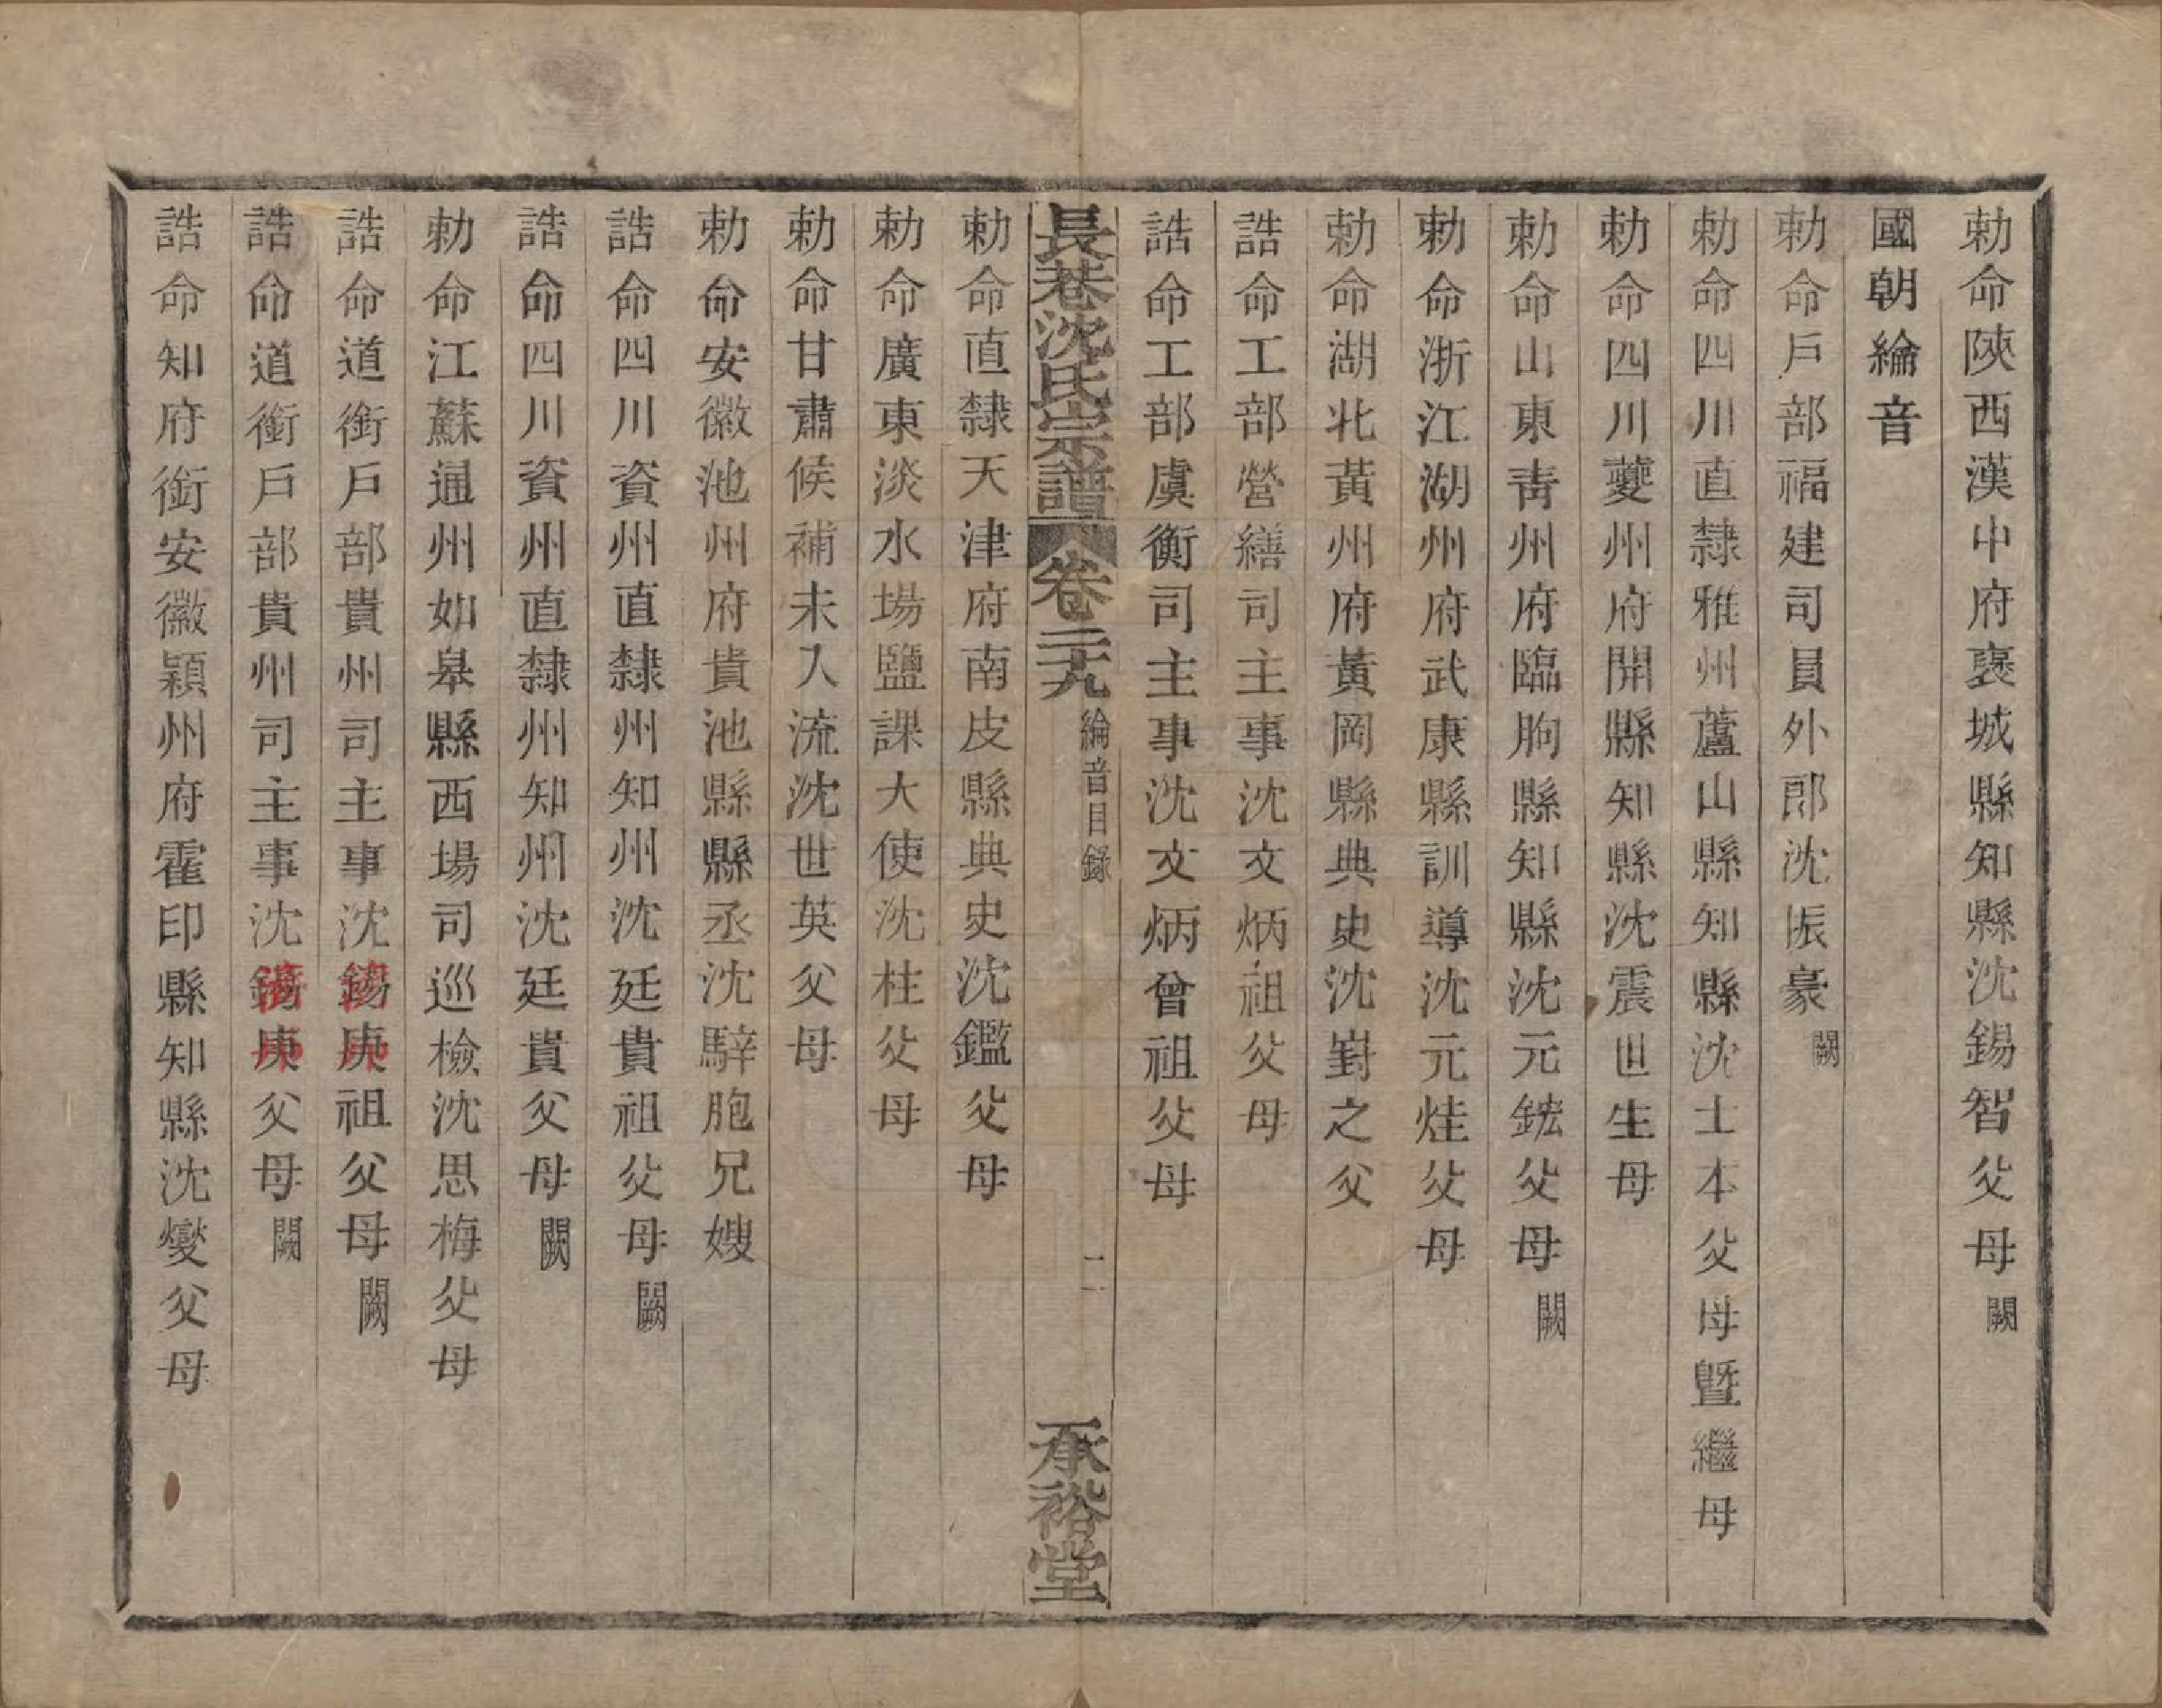 勅命陝西漢中府襃城縣知縣沈錫智父母闕
國朝綸音
勅命戶部福建司員外郎沈振豪闕
勅命四川直隸雅州蘆山縣知縣沈士本父母曁繼母
勅命四川夔州府開縣知縣沈震世生母
勅命山東靑州府臨朐縣知縣沈元鋐父母闕
勅命浙江湖州府武康縣訓導沈元烓父母
勅命湖北黃州府黃岡縣典史沈嶎之父
誥命工部營繕司主事沈文炳祖父母
誥命工部虞衡司主事沈文炳曾祖父母
長巷沈氏宗譜 卷二十九 綸音目錄 二 承裕堂
勅命直隸天津府南皮縣典史沈鑑父母
勅命廣東淡水場鹽課大使沈柱父母
勅命甘肅候補未入流沈世英父母
勅命安徽池州府貴池縣縣丞沈騂胞兄嫂
誥命四川資州直隸州知州沈廷貴祖父母闕
誥命四川資州直隸州知州沈廷貴父母闕
勅命江蘇通州如皋縣西場司巡檢沈思梅父母
誥命道銜戶部貴州司主事沈錫庚祖父母闕
誥命道銜戶部貴州司主事沈錫庚父母闕
誥命知府銜安徽潁州府霍印縣知縣沈燮父母